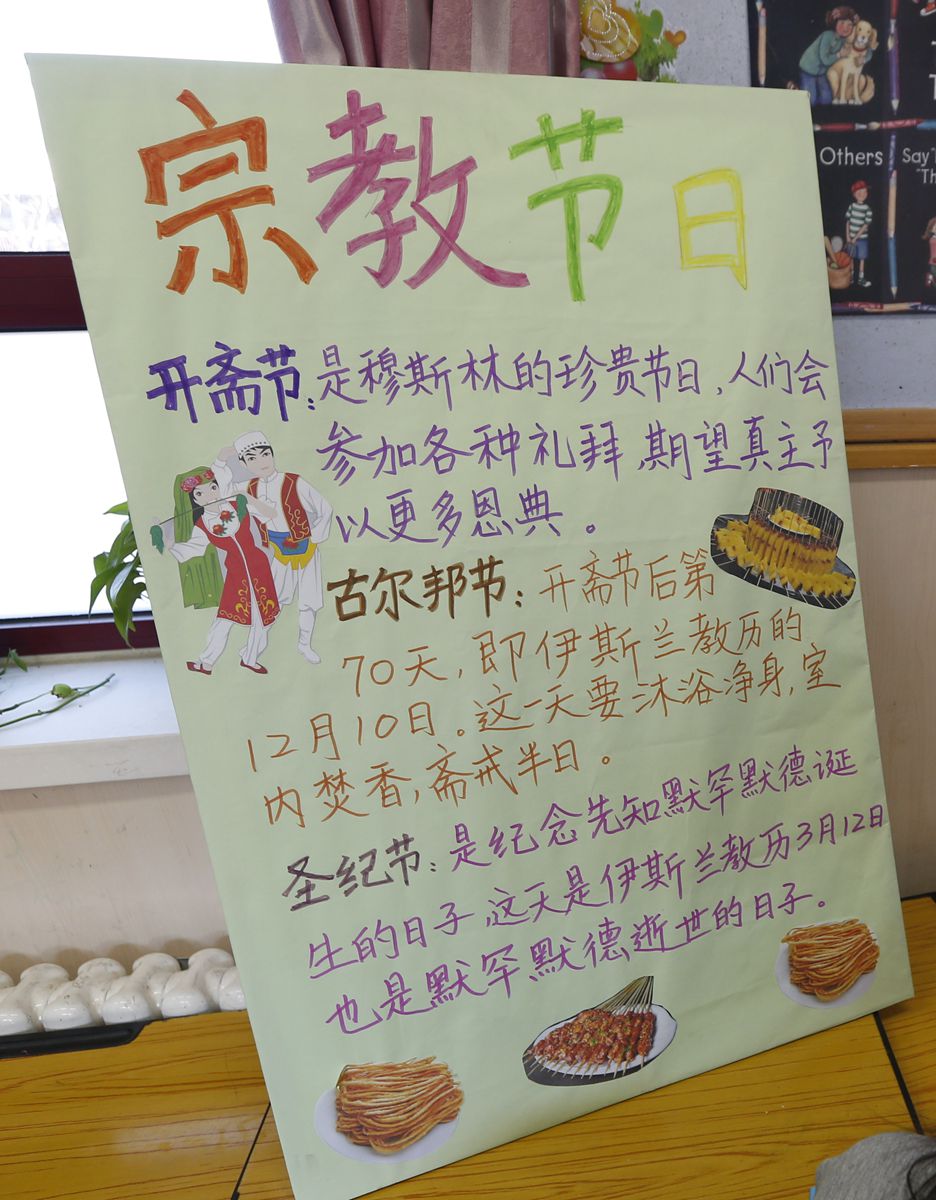 宗教节日
开斋节:是穆斯林的珍贵节日,人们会
参加各种礼拜,期望真主予
以更多恩典。
古尔邦节:开斋节后第
70天,即伊斯兰教历的
12月10日。这一天要沐浴净身,室
内焚香,斋戒半日。
圣纪节:是纪念先知默罕默德诞
生的日子,这天是伊斯兰教历3月12日
也是默罕默德逝世的日子。
Others
Say "
"Th